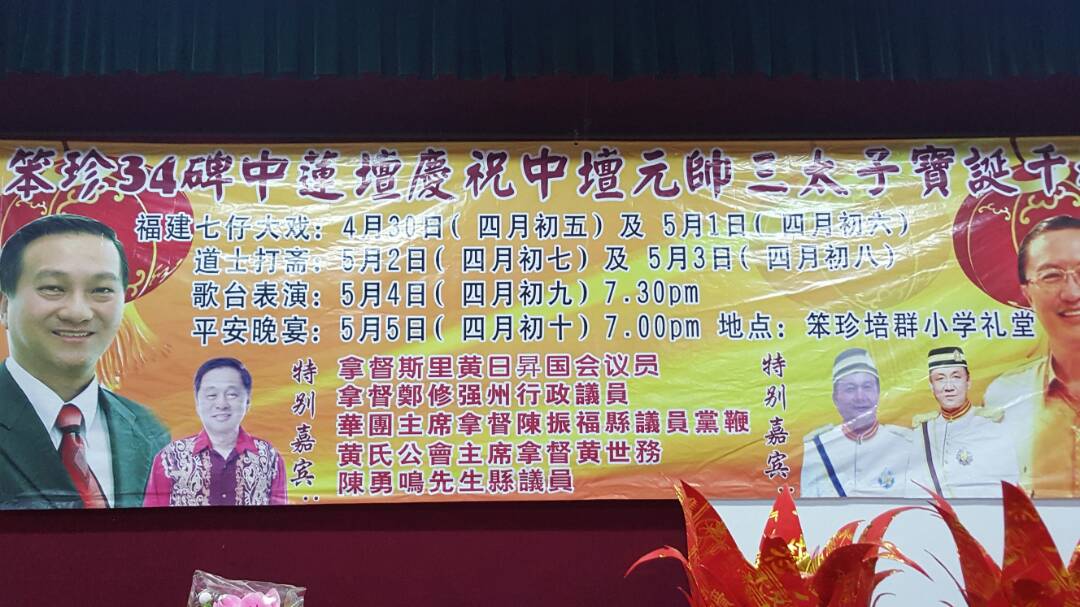 笨珍34碑中蓮壇慶祝中壇元帥三太子寶誕千
福建七仔大戏：4月30日( 四月初五) 及 5月1日( 四月初六)
道士打斋：5月2日( 四月初七) 及 5月3日( 四月初八)
歌台表演：5月4日( 四月初九) 7.30pm
平安晚宴：5月5日( 四月初十) 7.00pm 地点：笨珍培群小学礼堂
特别嘉宾：
拿督斯里黄日昇国会议员
拿督鄭修强州行政議員
華團主席拿督陳振福縣議員黨鞭
黄氏公會主席拿督黄世務
陳勇鳴先生縣議員
特别嘉宾：